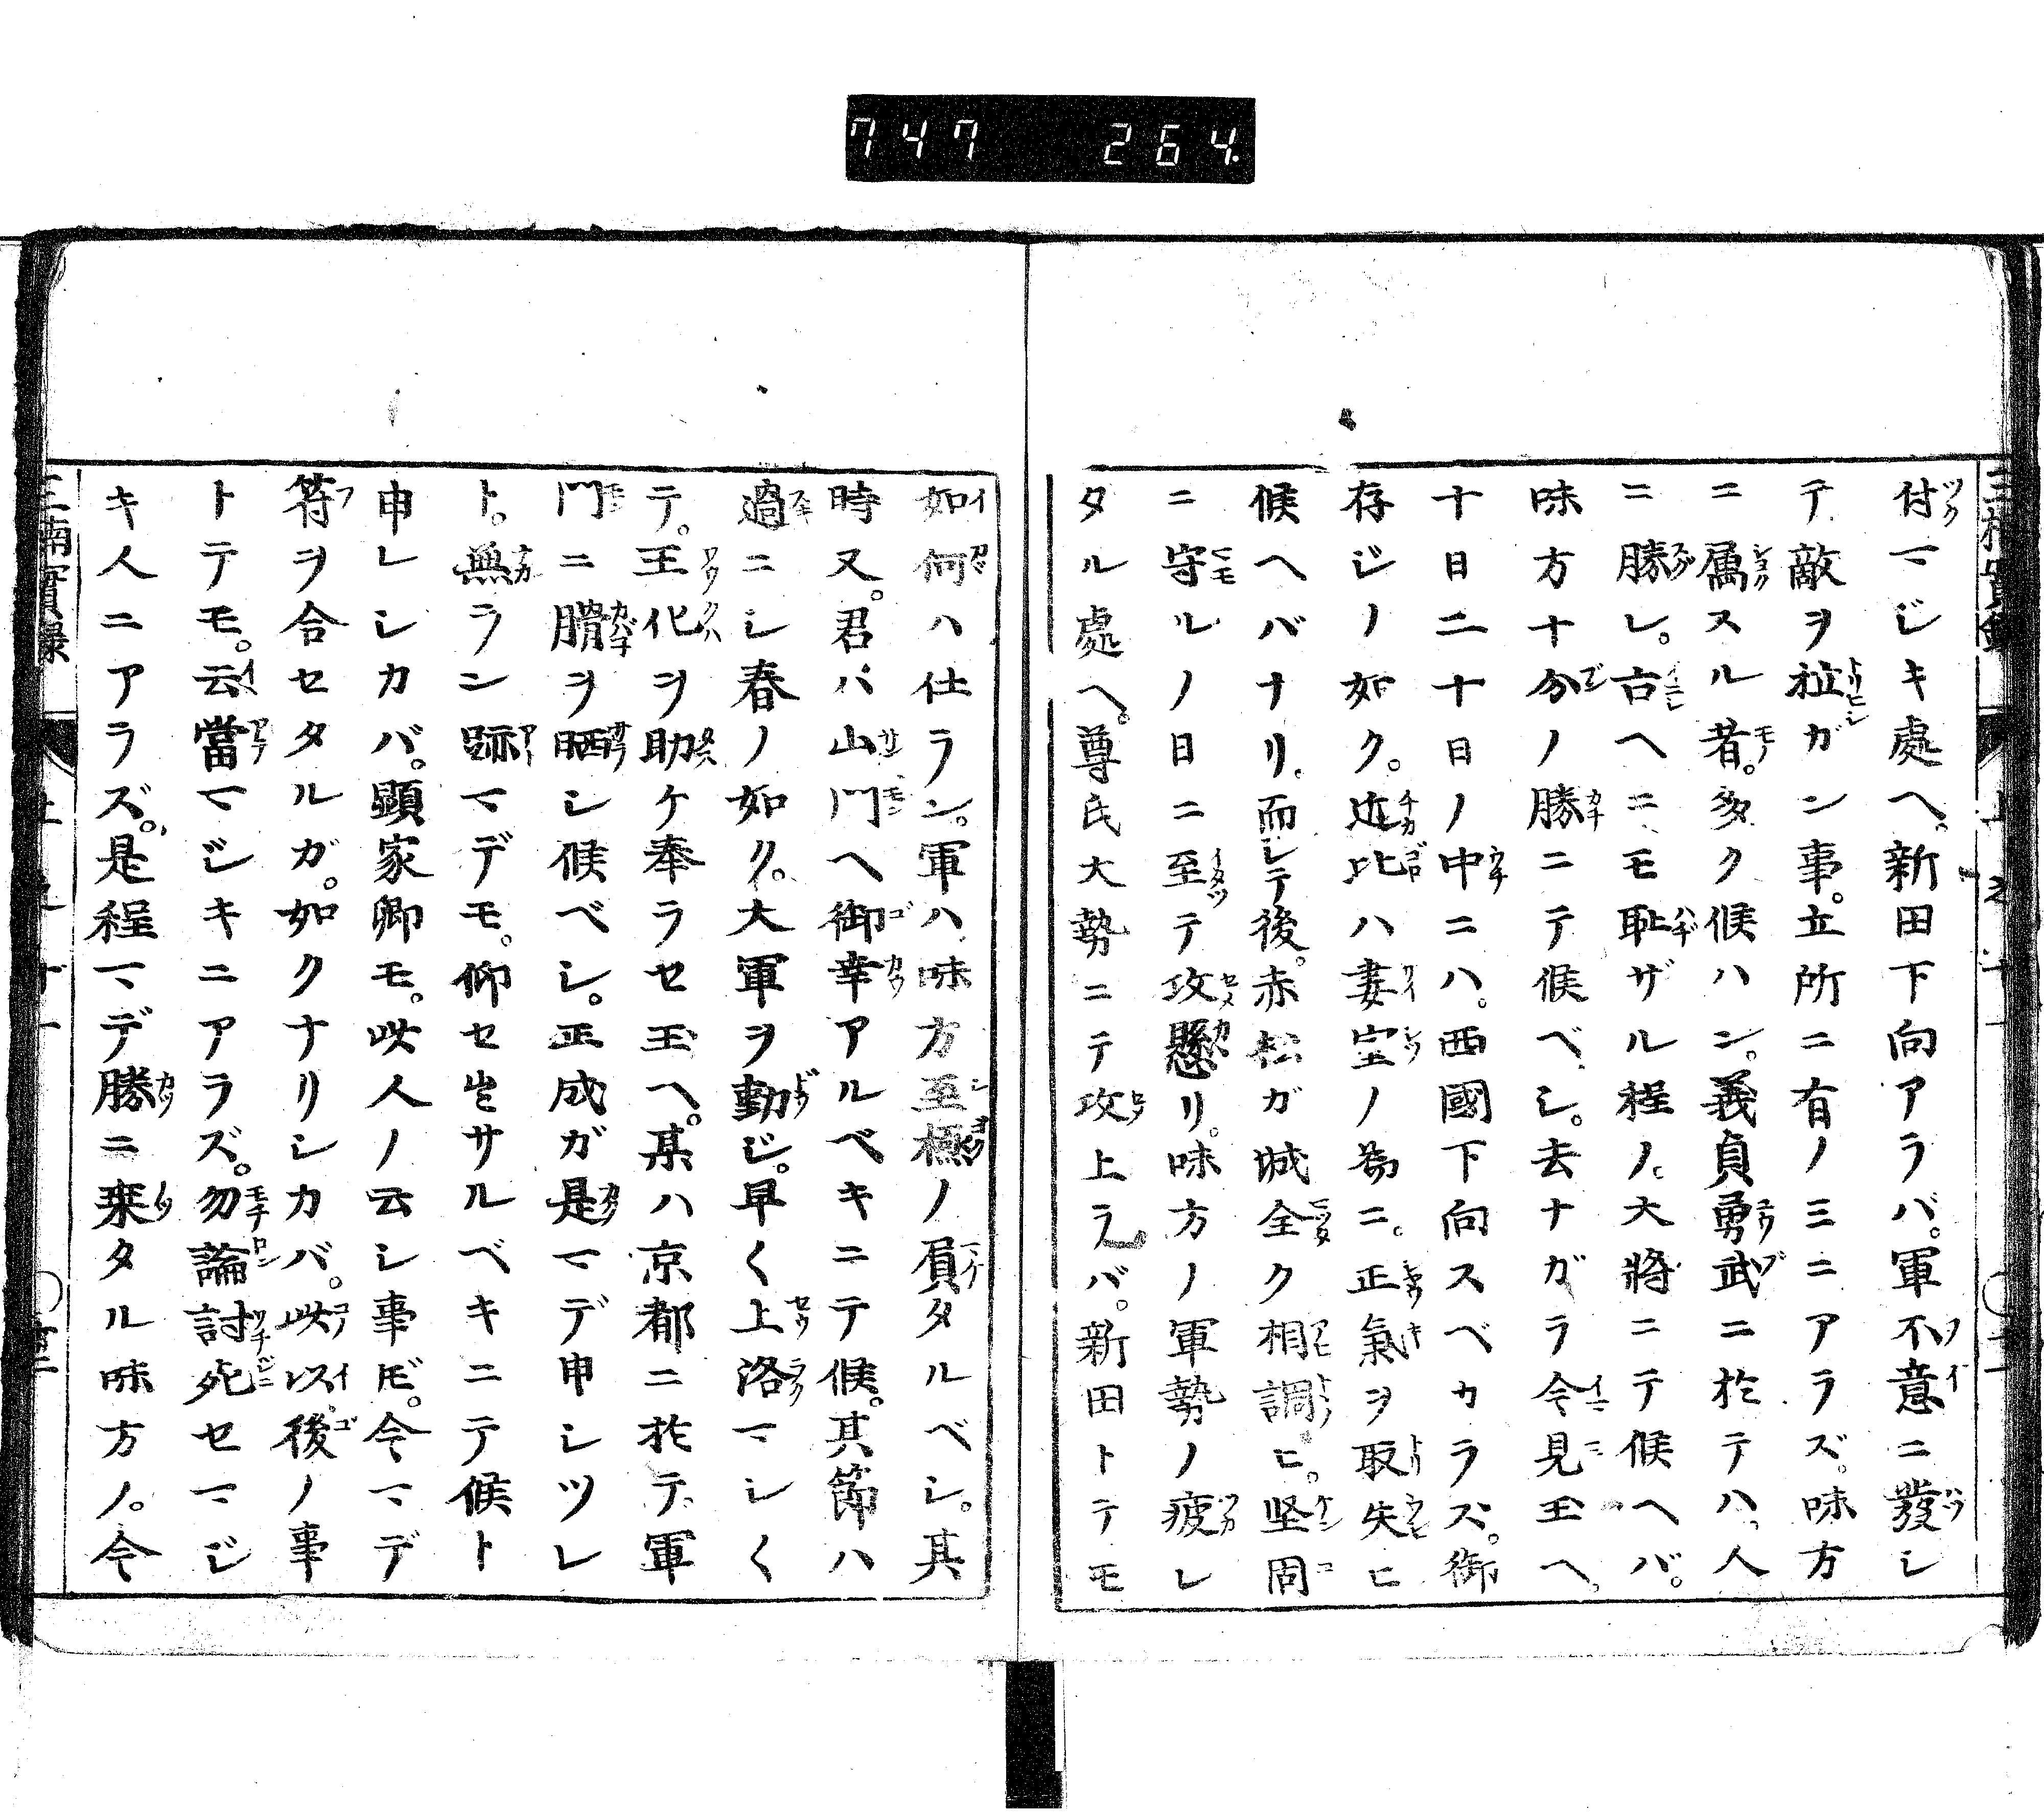 747 264.
付マジキ處ヘ。新田下向アラバ。軍不意ニ發シ
テ敵ヲ拉ガン事。立所ニ有ノミニアラズ。味方
ニ属スル者。多ク候ハン。義貞勇武ニ於テハ。人
ニ勝レ。古ヘニモ恥ザル程ノ。大將ニテ候ヘバ。
味方十分ノ勝ニテ候ベシ。去ナガラ今見玉ヘ。
十日二十日ノ中ニハ。西國下向スベカラズ。御
存ジノ如ク。近比ハ妻室ノ為ニ。正氣ヲ取失ヒ
候ヘバナリ。而シテ後。赤松ガ城全ク相調ヒ。堅固
ニ守ルノ日ニ至テ攻懸リ。味方ノ軍勢ノ疲レ
タル處ヘ。尊氏大勢ニテ攻上ラバ。新田トテモ
如何ハ仕ラン。軍ハ味方至極ノ負タルベシ。其
時又。君ハ山門ヘ御幸アルベキニテ候。其節ハ
過ニシ春ノ如ク。大軍ヲ動ジ。早く上洛マシく
テ。王化ヲ助ケ奉ラセ玉ヘ。某ハ京都ニ於テ軍
門ニ髃ヲ晒シ候ベシ。正成ガ是マデ申シツレ
ト。無ラン跡マデモ。仰セ出サルベキニテ候ト
申レシカバ。顕家卿モ。此人ノ云シ事𪜈。今マデ
符ヲ合セタルガ。如クナリシカバ。此以後ノ事
トテモ。云當マジキニアラズ。勿論討死セマジ
キ人ニアラズ。是程マデ勝ニ乗タル味方ノ。今